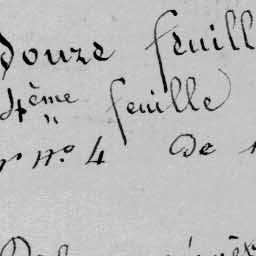 douze feuill
4ème feuille
n° 4 De